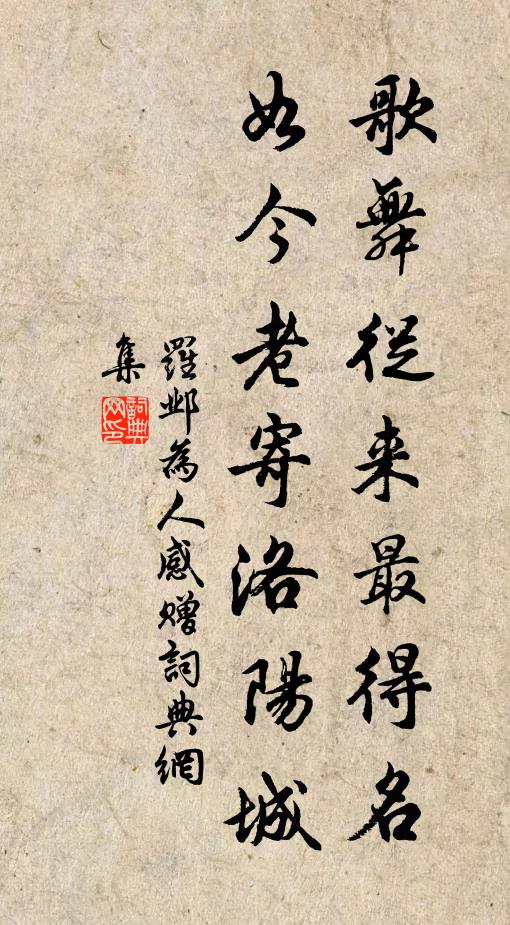 歌舞從来最得名
如今老寄洛陽城
羅鄴為人感贈詞典網
集
詞典
网印